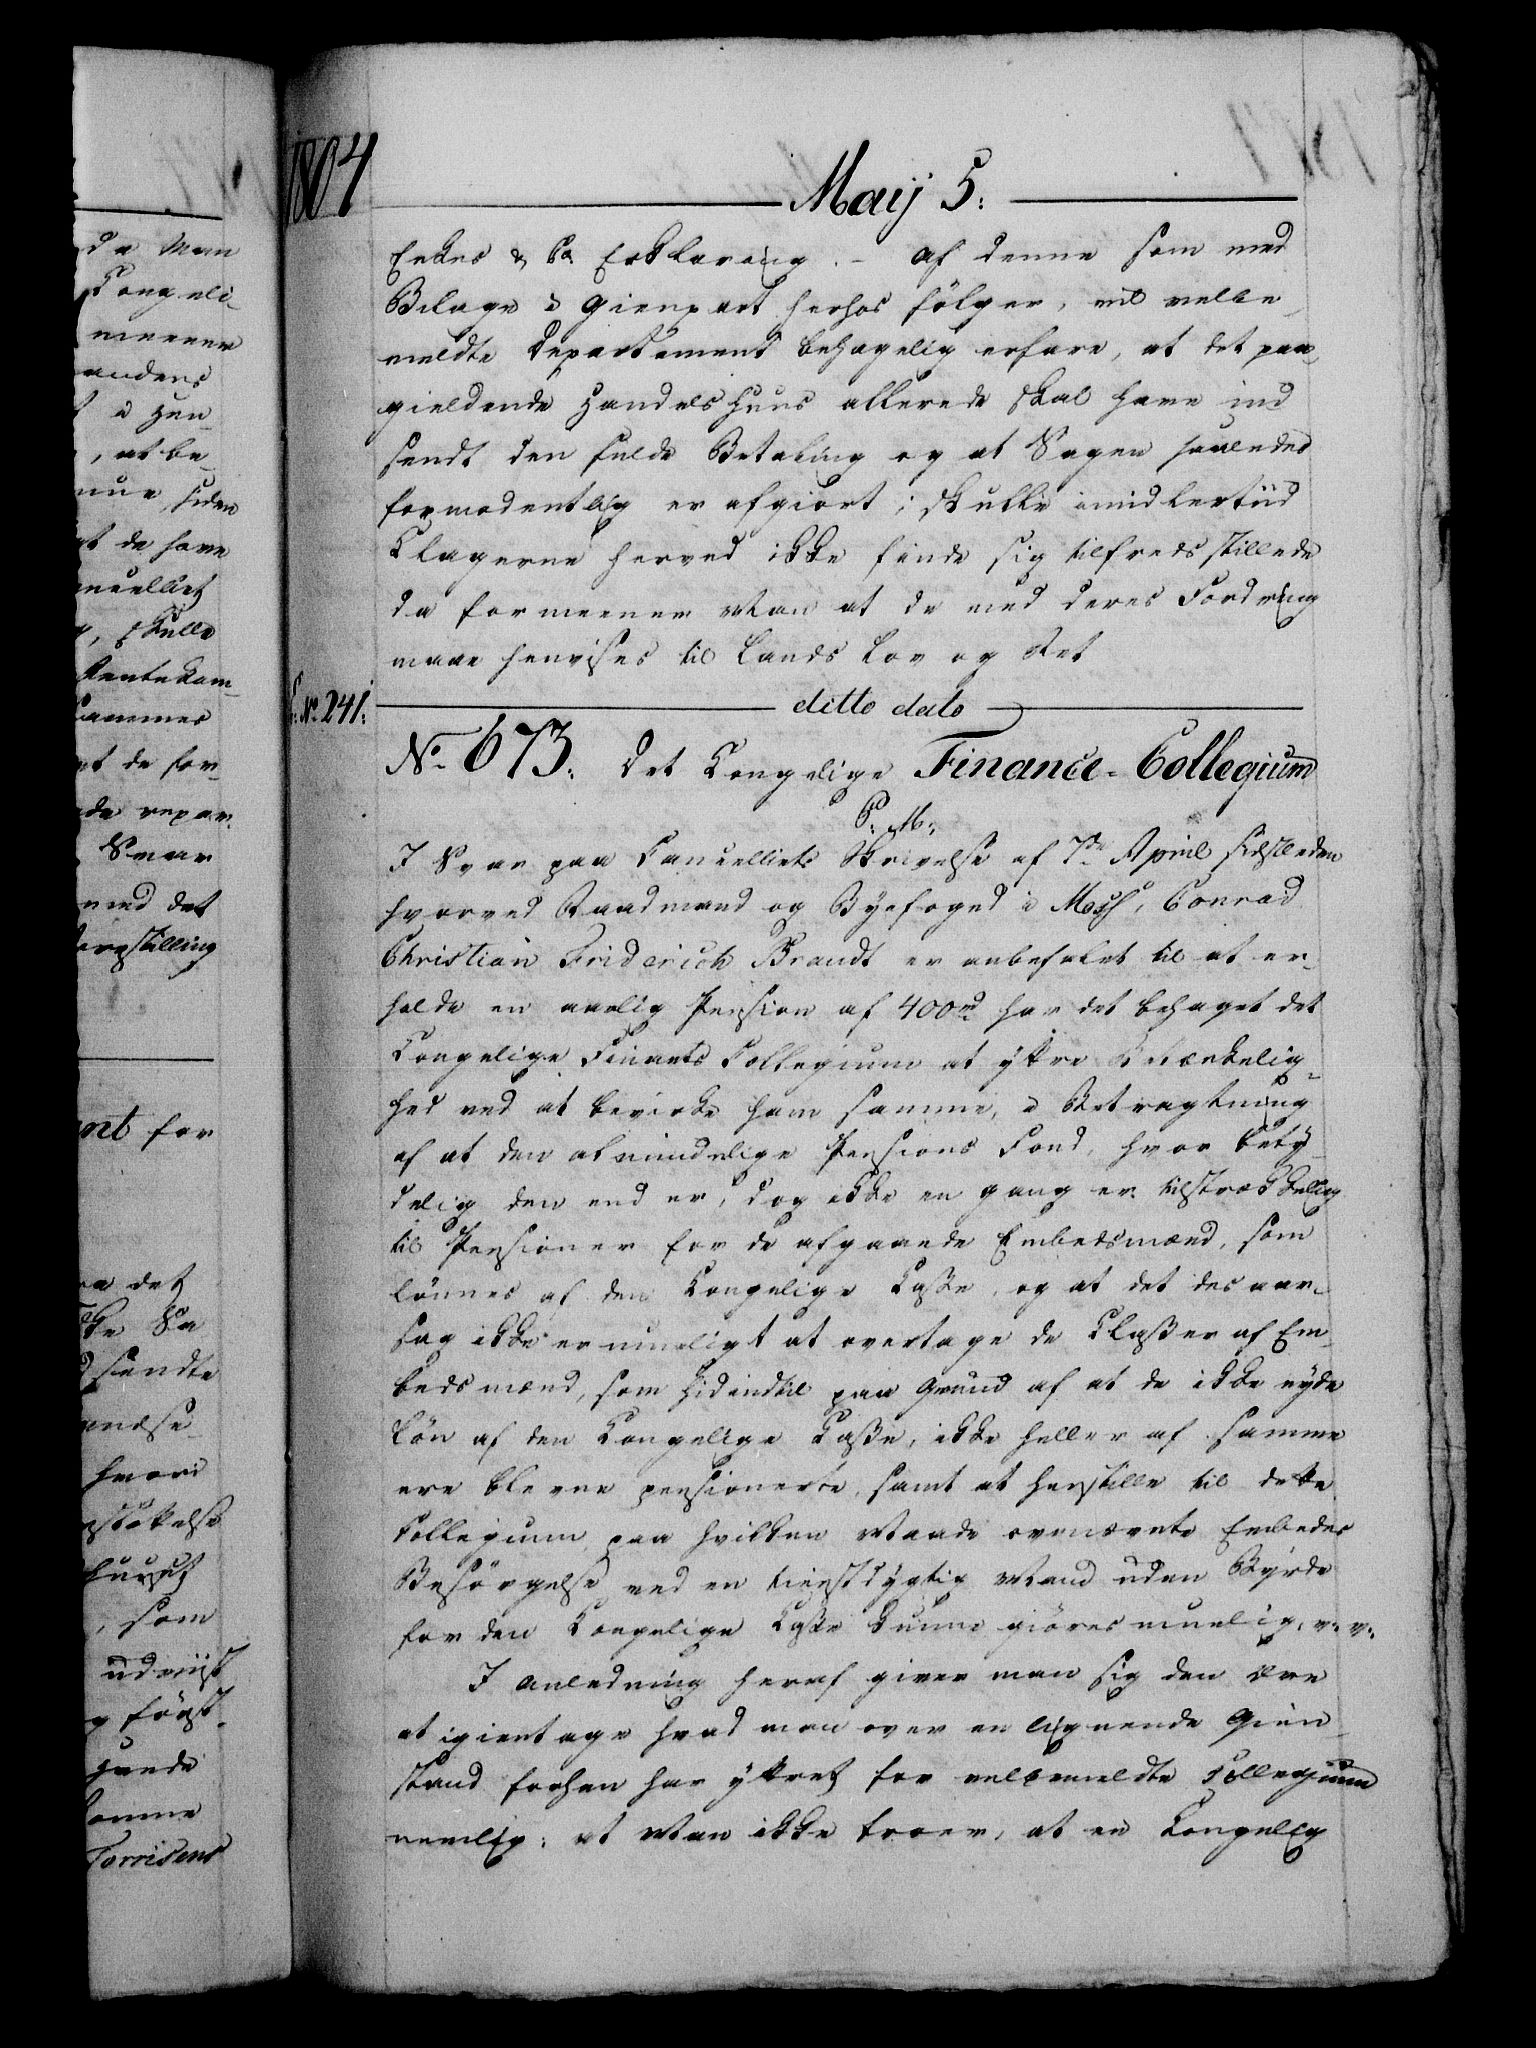 1804
Maij 5:
Enkes & Co Erklæring. – Af denne som med
Bilage i Gienpart herhos følger, vil velbe-
meldte Departement behagelig erfare, at det paa-
gieldende Handelshuus allerede skal have ind
sendt den fulde Betaling og at Sagen saaledes
formodentlig er afgiort; skulle imidlertiid
Klagerne herved ikke finde sig tilfredsstillede
da formeener Man at de med deres Fordring
maae henvises til Lands Lov og Ret
No 241:
ditto dato
No 673. Det Kongelige Finance-Collegium
P: M:
I Svar paa Cancelliets Skrivelse af 7de April sidstleden
hvorved Raadmand og Byefoged i Moss, Conrad
Christian Friderich Brandt er anbefalet til at er-
holde en aarlig Pension af 400 rd har det behaget det
Kongelige Finants Collegium at yttre Betænkelig-
hed ved at bevirke ham samme, i Betragtning
af at den almindelige Pensions Fond, hvor bety-
delig den end er, dog ikke en gang er tilstrækkelig
til Pensioner for de afgaaende Embedsmænd, som
lønnes af den Kongelige Casse, og at det des aar-
sag ikke er mueligt at overtage de Classer af Em-
bedsmænd, som hidindtil paa Grund af at de ikke nyde
Løn af den Kongelige Casse, ikke heller af samme
ere blevne pensionerte, samt at henstille til dette
Collegium, paa hvilken Maade ovennævnte Embedes
Besørgelse ved en tienstdygtig Mand uden Byrde
for den Kongelige Casse kunne giøres muelig, v: v:
I Anledning heraf giver man sig den Ære
at igientage hvad man over en lignende Gien-
stand forhen har yttret for velbemeldte Collegium
nemlig: at Man ikke troer, at en Kongelig